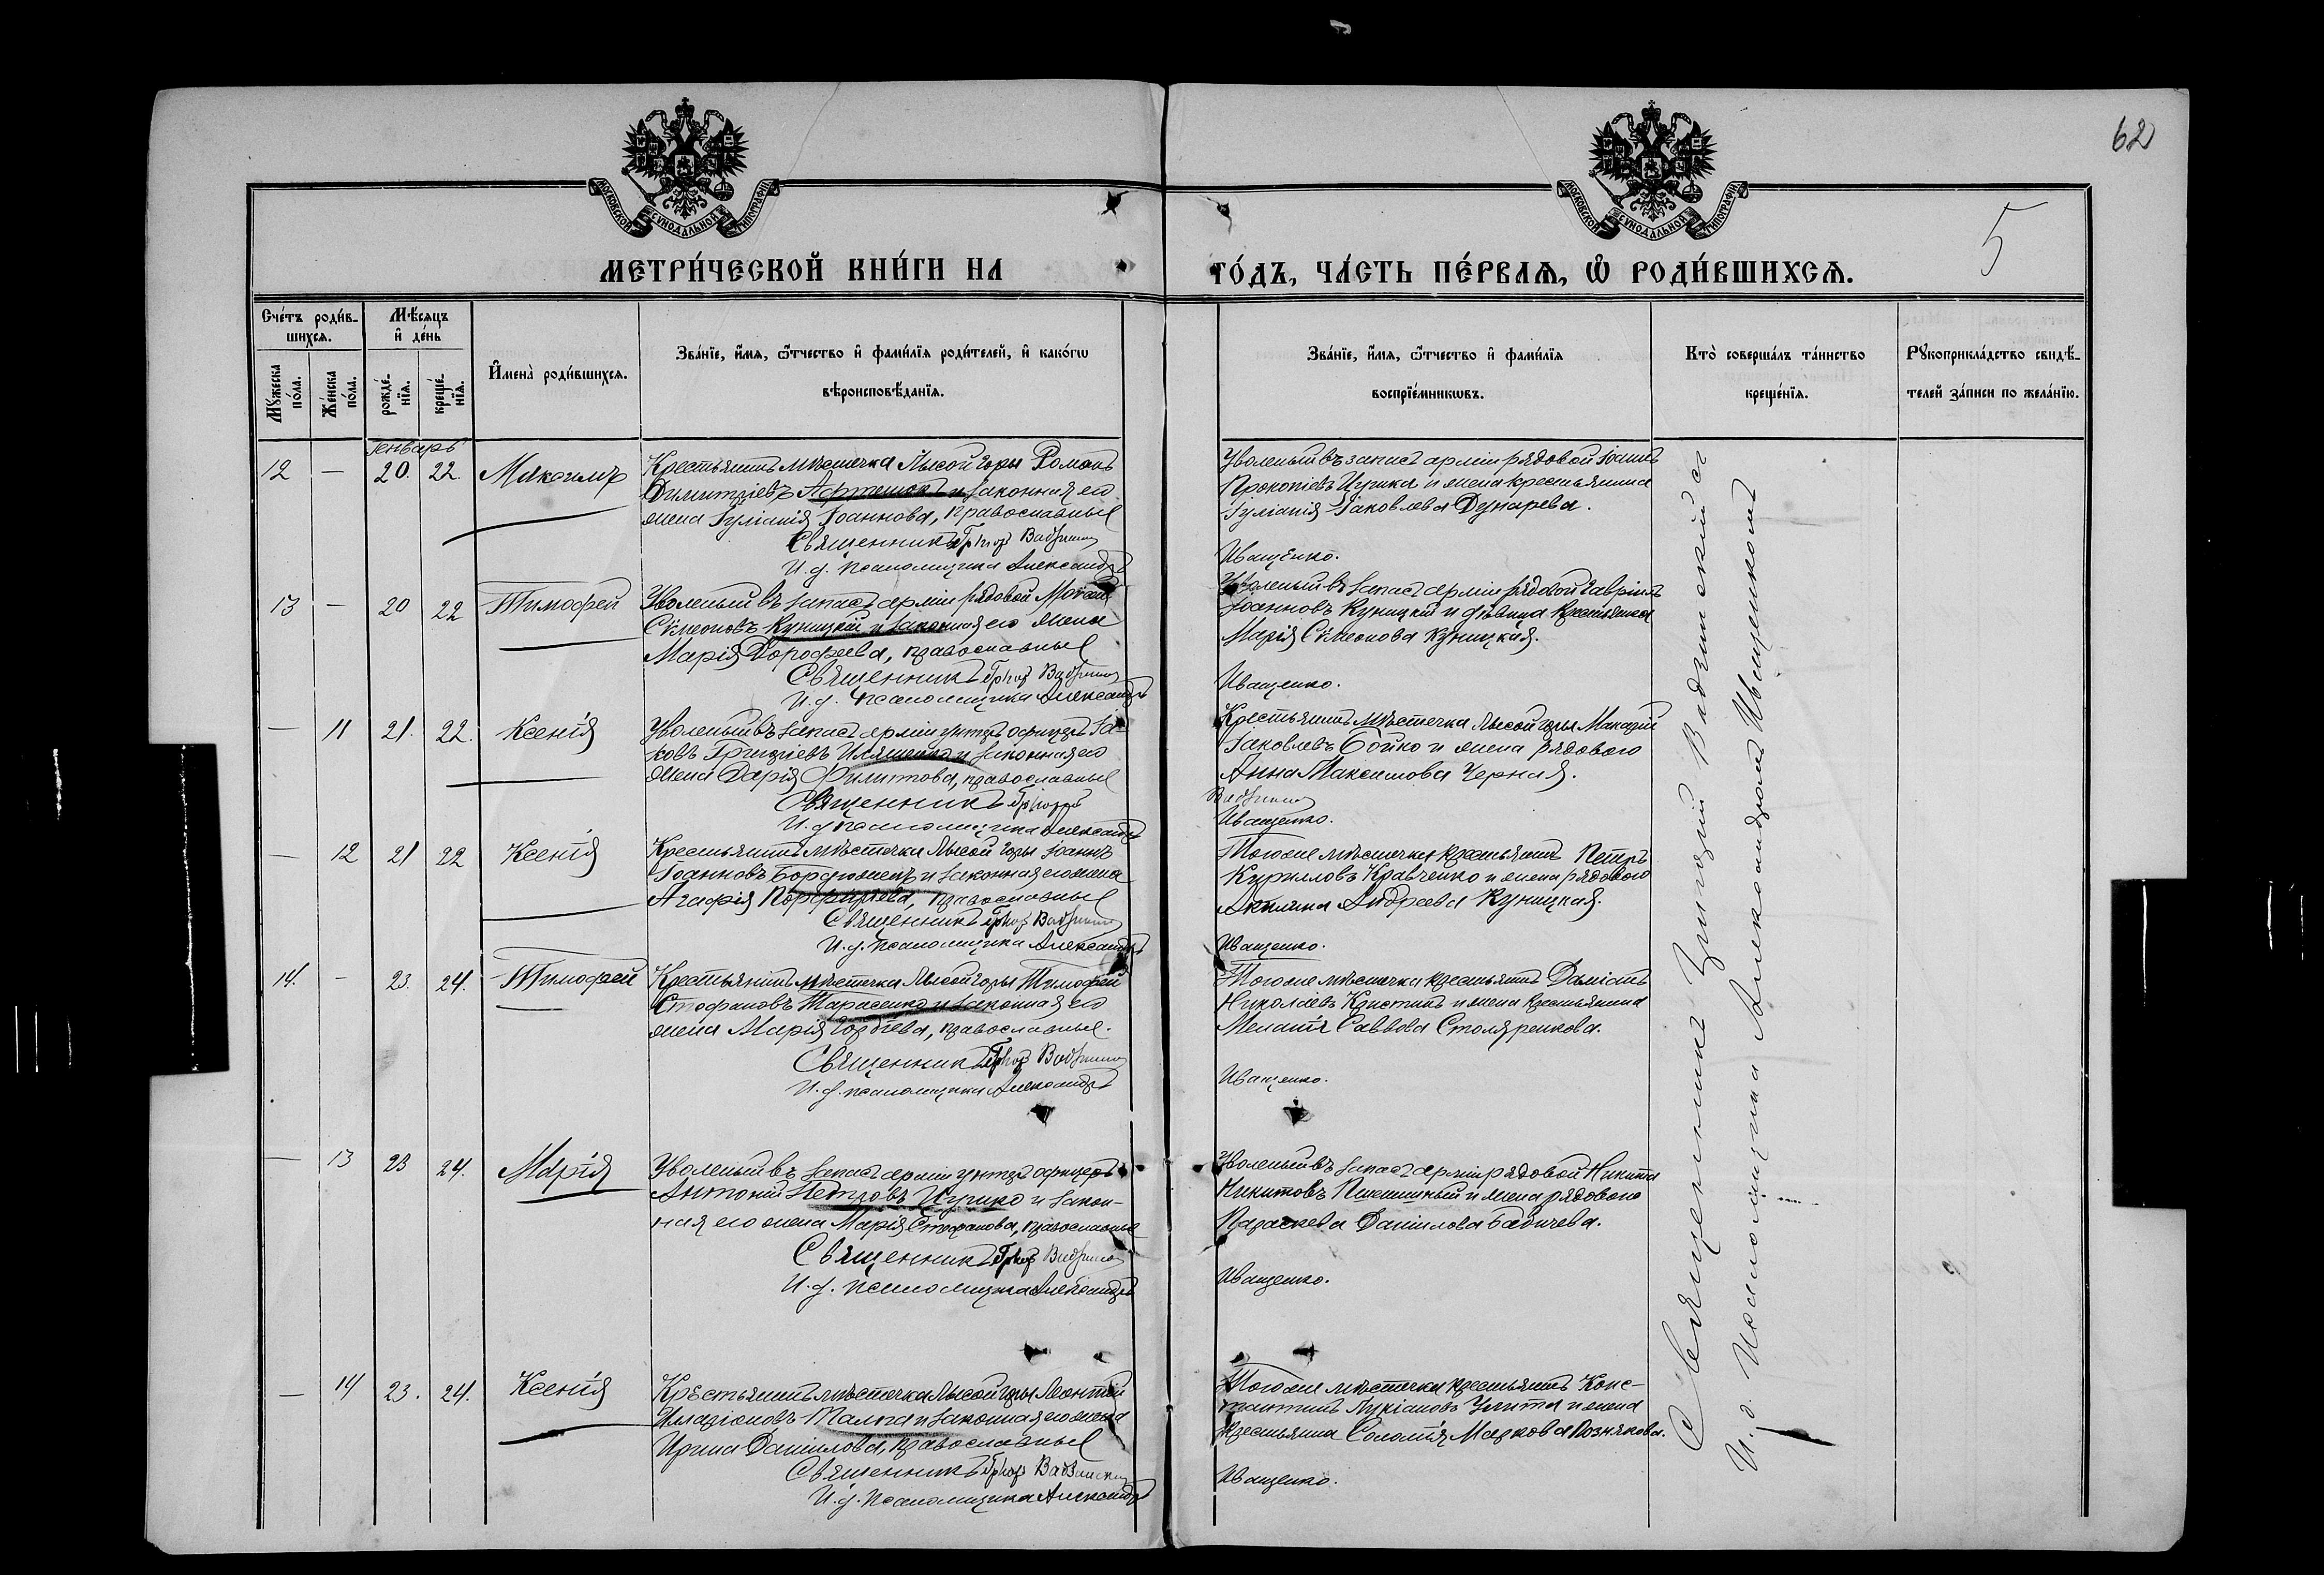 62
5
МОСКОВСКОЙ СѴНОДАЛЬНОЙ ТИПОГРАФІИ
МОСКОВСКОЙ СѴНОДАЛЬНОЙ ТИПОГРАФІИ
МЕТРИ́ЧЕСКОЙ КНИ́ГИ НА
ГО́ДЪ, ЧА́СТЬ ПЕ́РВАѦ, Ѡ҆ РОДИ́ВШИХСѦ.
Сче́тъ роди́в-
шихсѧ.
Мꙋ́жеска по́ла.
Же́нска по́ла.
Мѣ́сѧцъ
и҆ де́нь
рожде́-
нїѧ.
креще́-
нїѧ.
И҆мена̀ роди́вшихсѧ.
Зва́нїе, и҆́мѧ, ѻ҆́тчество и҆ фами́лїѧ роди́телей, и҆ како́гѡ
вѣроисповѣ́данїѧ.
Зва́нїе, и҆́мѧ, ѻ҆́тчество и҆ фами́лїѧ
воспрїе́мникѡвъ.
Кто̀ соверша́лъ та́инство
креще́нїѧ.
Рꙋкоприкла́дство свидѣ́-
телей за́писи по жела́нїю.
Январь
12 — 20. 22. Максимъ
Крестьянинъ мѣстечка Лысой Горы Романъ
Димитріевъ и законная его
жена Іуліанія Іоаннова, православные
Священникъ
И. д. псаломщика Александръ
Уволеный въ запасъ арміи рядовой Іоаннъ
Прокопіевъ и жена крестьянина
Іуліанія Іаковлева
Иващенко.
13 — 20 22 Тимофей
Уволеный въ запасъ арміи рядовой Моисей
Сѵмеоновъ Куницкій и законная его жена
Марія Дорофеева, православные
Священникъ
И. д. псаломщика Александръ
Уволеный въ запасъ арміи рядовой Гавріилъ
Іоанновъ Куницкій и дѣвица крестьянка
Марія Сѵмеонова Куницкая.
Иващенко.
— 11 21. 22. Ксенія
Уволеный въ запасъ арміи унтеръ офицеръ Іа-
ковъ Григоріевъ Ильяшенко и законная его
жена Дарія Филиппова, православные
Священникъ
И. д. псаломщика Александръ
Крестьянинъ мѣстечка Лысой горы Макарій
Іаковлевъ Бойко и жена рядового
Анна Максимова Черная.
Иващенко.
— 12 21 22 Ксенія
Крестьянинъ мѣстечка Лысой Горы Іоаннъ
Іоанновъ и законная его жена
Агафія Порфиріева, православные
Священникъ
И. д. псаломщика Александръ
Тогоже мѣстечка крестьянинъ Петръ
Кирилловъ Кравченко и жена рядового
Акилина Андреева Куницкая.
Иващенко.
14. — 23. 24. Тимофей
Крестьянинъ мѣстечка Лысой Горы Тимофей
Стефановъ Тарасенко и законная его
жена Марія Гордіева, православные.
Священникъ
И. д. псаломщика Александръ
Тогоже мѣстечка крестьянинъ Даміанъ
Николаевъ и жена крестьянина
Меланія Саввова Столяренкова.
Иващенко.
— 13 23 24. Марія
Уволеный въ запасъ арміи унтеръ офицеръ
Антоній Петровъ и закон-
ная его жена Марія Стефанова, православные
Священникъ
И. д. псаломщика Александръ
Уволеный въ запасъ арміи рядовой Никита
Никитовъ Пшеничный и жена рядового
Параскева Даніилова Бабичева.
Иващенко.
— 14 23. 24. Ксенія
Крестьянинъ мѣстечка Лысой Горы Леонтій
Иларіоновъ и законная его жена
Ирина Даніилова, православные
Священникъ
И. д. псаломщика Александръ
Тогоже мѣстечка крестьянинъ Конс-
тантинъ Лукіановъ и жена
крестьянина Соломія Маркова Познякова.
Иващенко.
Священникъ Григорій
И. д. Псаломщика Александръ Иващенко